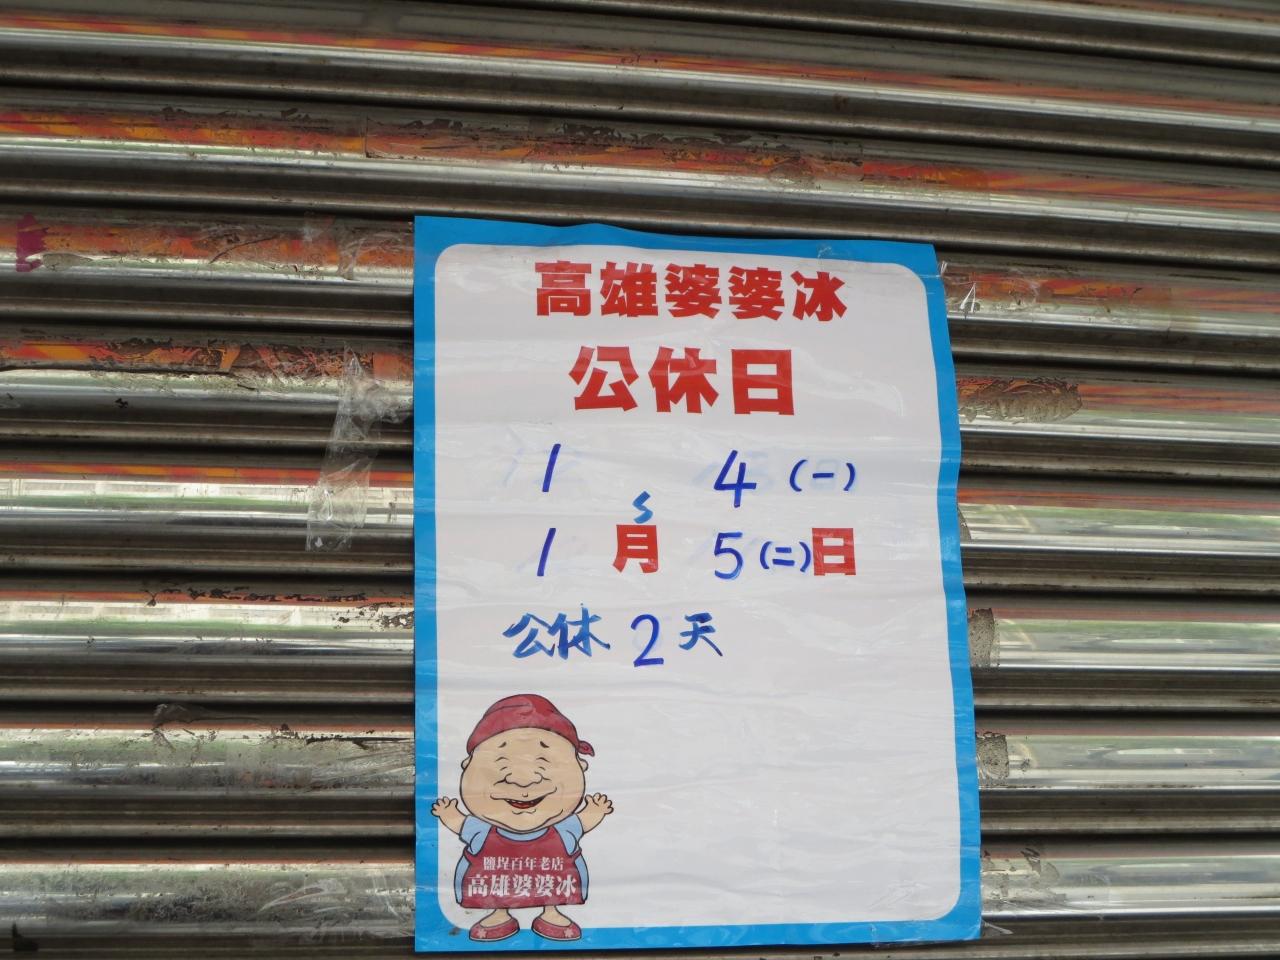 高雄婆婆冰
公休日
1 4 (一)
~
1 月 5 (二) 日
公休 2 天
鹽埕百年老店
高雄婆婆冰